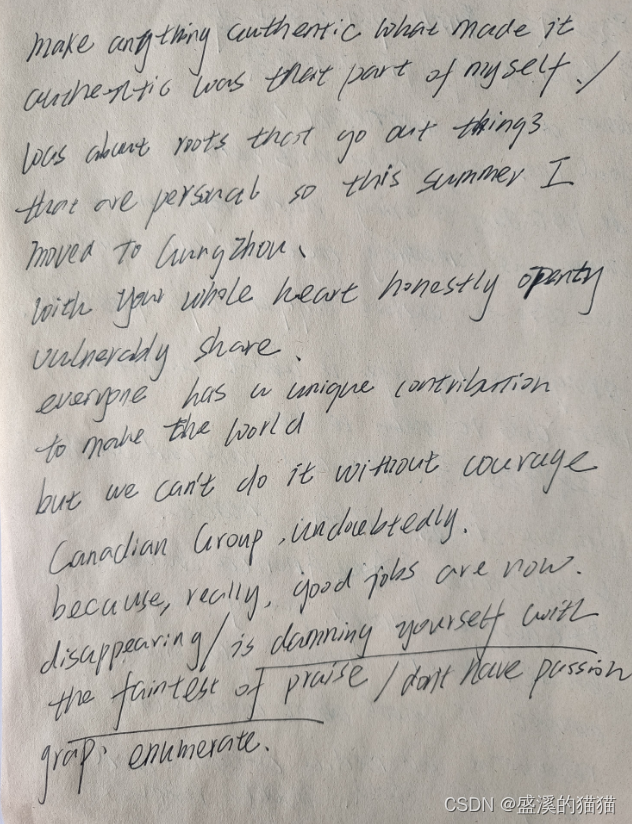 make anything authentic what made it
authentic was that part of myself. /
was about roots that go out things
that are personal so this summer I
moved to Gungzhou、
with your whole heart honestly openty
vulnerably share.
everyone has a unique contribution
to make the world
but we can't do it without courage
Canadian Group, undoubtedly.
because, really, good jobs are now.
disappearing / is damning yourself with
the faintest of praise / don't have passion
grap. enumerate.
CSDN @盛溪的猫猫